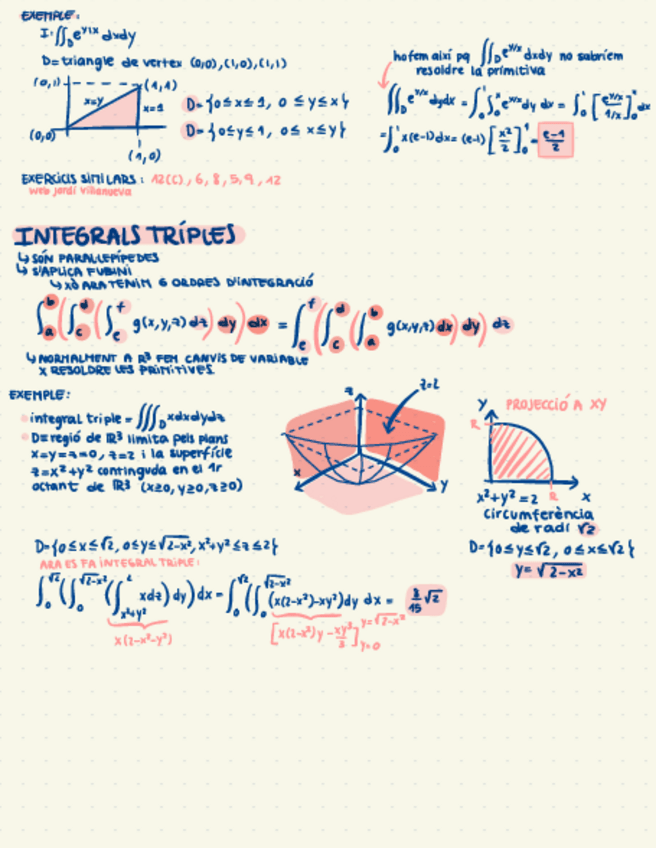 EXEMPLE:
I: ∬_D e^{y/x} dxdy
D= triangle de vertex (0,0),(1,0),(1,1)
(0,1)
(1,1)
x=y
x=1
(0,0)
(1,0)
D={0≤x≤1, 0≤y≤x}
D={0≤y≤1, 0≤x≤y}
ho fem així pq ∬_D e^{y/x} dxdy no sabríem
resoldre la primitiva
∬_D e^{y/x} dydx = ∫_0^1 ∫_0^x e^{y/x} dy dx = ∫_0^1 [e^{y/x}/1/x]_0^x dx
=∫_0^1 x(e-1)dx = (e-1) [x²/2]_0^1 = e-1/2
EXERCICIS SIMILARS: 12(C), 6, 8, 5, 9, 12
web Jordi Villanueva
INTEGRALS TRÍPLES
↳ SÓN PARAL·LEPÍPEDES
↳ S'APLICA FUBINI
↳ XÒ ARA TENIM 6 ORDRES D'INTEGRACIÓ
∫_a^b (∫_c^d (∫_e^f g(x,y,z) dz) dy) dx = ∫_e^f (∫_c^d (∫_a^b g(x,y,z) dx) dy) dz
↳ NORMALMENT A R³ FEM CANVIS DE VARIABLE
X RESOLDRE LES PRIMITIVES.
EXEMPLE:
integral triple = ∭_D xdxdydz
D=regió de R³ limita pels plans
x=y=z=0, z=2 i la superfície
z=x²+y² continguda en el 1r
octant de R³ (x≥0, y≥0, z≥0)
z
z=2
x
y
PROJECCIÓ A XY
y
R
R
x
x²+y²=2
circumferència
de radi √2
D={0≤y≤√2, 0≤x≤√2}
y=√2-x²
D={0≤x≤√2, 0≤y≤√2-x², x²+y²≤z≤2}
ARA ES FA INTEGRAL TRIPLE:
∫_0^√2 (∫_0^√2-x² (∫_{x²+y²}^2 xdz) dy) dx = ∫_0^√2 (∫_0^√2-x² (x(2-x²)-xy²)dy dx = 8/15 √2
x(2-x²-y²)
[x(2-x²)y - xy³/3]_{y=0}^{y=√2-x²}